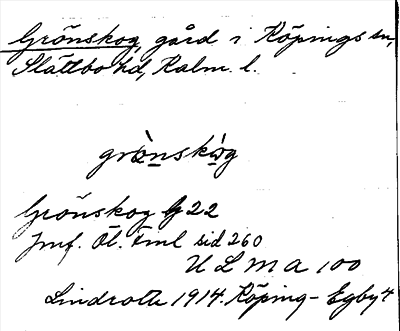 Grönskog, gård i Köpings sn,
Slättbo hd, Kalm. l.
grö̀nskò̤g
Grönskog G 22
Jmf. Öl. Fml sid 260
U L M A 100
Lindroth 1914. Köping - Egby 4